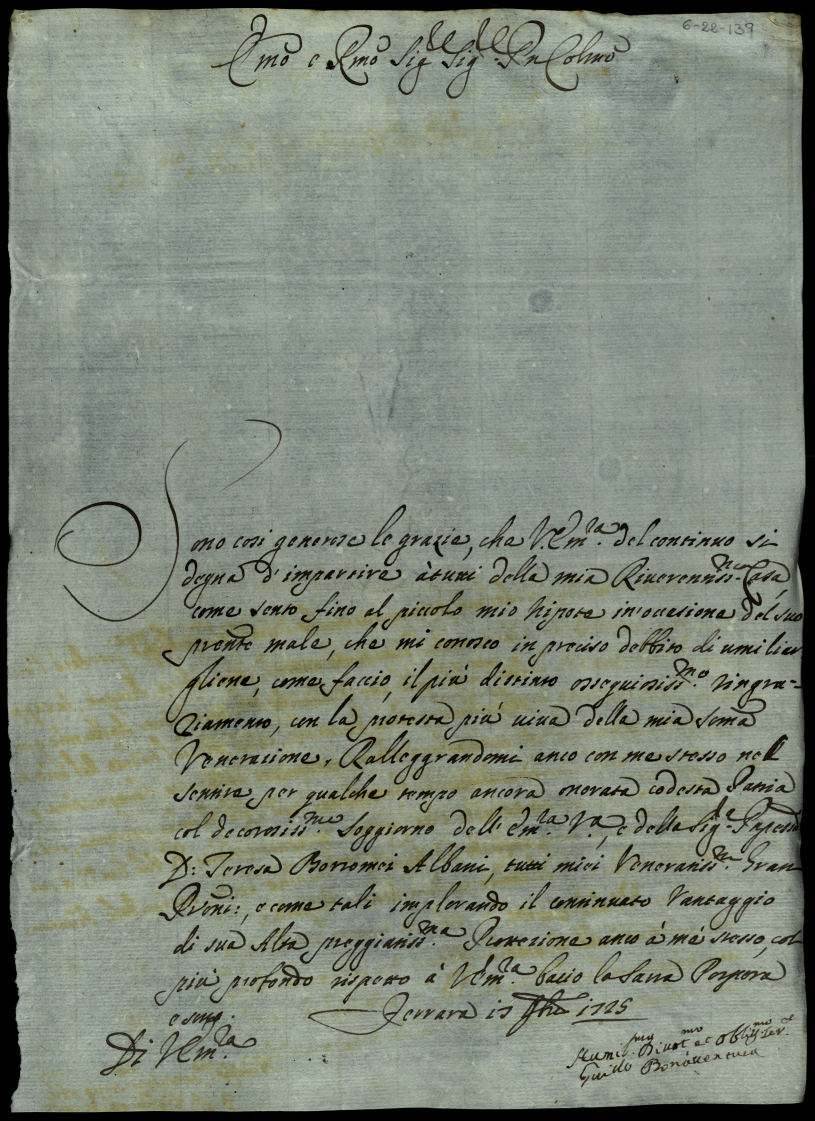 6-22-139
Emo e Rmo Sigre Sigre Pn Colmo
Sono cosi generose le grazie, che V. Emza. del continuo si
degna d'impartire à tutti della mia Riverentissma Casa
come sento fino al piccolo mio Nipote in occasione del suo
pnte male, che mi conosco in preciso debbito di umiliar
gliene, come faccio, il più distinto ossequiosissmo ringra-
ziamento, con la protesta più viva della mia soma
Venerazione, Ralleggrandomi anco con me stesso nell
sentire per qualche tempo ancora onorata codesta Patria
col decorosissmo Soggiorno dell' Emza Va, e della Sigra Pnpessa
D: Teresa Borromei Albani, tutti miei Veneratissmi Gran
Proni:, e come tali implorando il continuato Vantaggio
di sua Alta preggiatissma Protezione anco à mè stesso, col
più profondo rispetto à V. Emza bacio la Sacra Porpora
Ferrara 17 1725
Di V. Emza
Humilmo Divotmo et Obligmo Serre
Guido Bonaventura